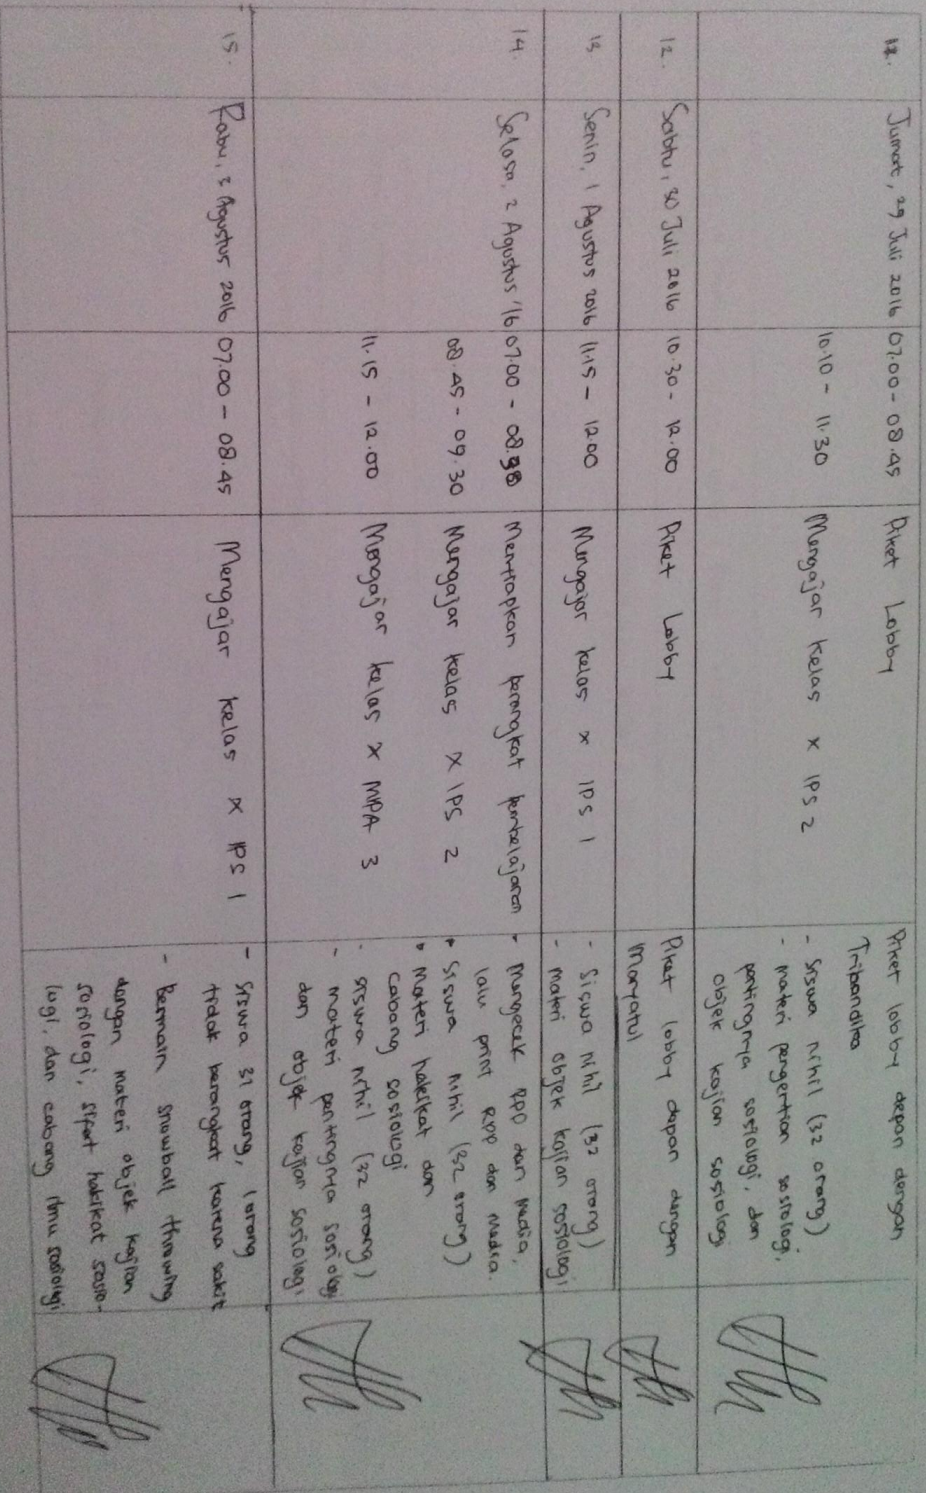 11.
Jumat, 29 Juli 2016
07.00 - 08.45
Piket Lobby
Piket lobby depan dengan
Tribandita
10.10 - 11.30
Mengajar kelas X IPS 2
- Siswa nihil (32 orang)
- materi pengertian sosiologi,
pentingnya sosiologi, dan
objek kajian sosiologi
12.
Sabtu, 30 Juli 2016
10.30 - 12.00
Piket Lobby
Piket lobby depan dengan
Maryatul
13
Senin, 1 Agustus 2016
11.15 - 12.00
Mengajar kelas X IPS 1
- Siswa nihil (32 orang)
- materi objek kajian sosiologi
14.
Selasa, 2 Agustus '16
07.00 - 08.30
Menyiapkan perangkat pembelajaran
- Mengecek RPP dan Media,
lalu print RPP dan Media.
08.45 - 09.30
Mengajar kelas X IPS 2
- Siswa nihil (32 orang)
- Materi hakikat dan
cabang sosiologi
11.15 - 12.00
Mengajar kelas X MIPA 3
- siswa nihil (32 orang)
- materi pentingnya sosiologi
dan objek kajian sosiologi
15.
Rabu, 3 Agustus 2016
07.00 - 08.45
Mengajar kelas X IPS 1
- Siswa 31 orang, 1 orang
tidak berangkat karena sakit
- Bermain snowball throwing
dengan materi objek kajian
sosiologi, sifat hakikat sosio-
logi, dan cabang ilmu sosiologi